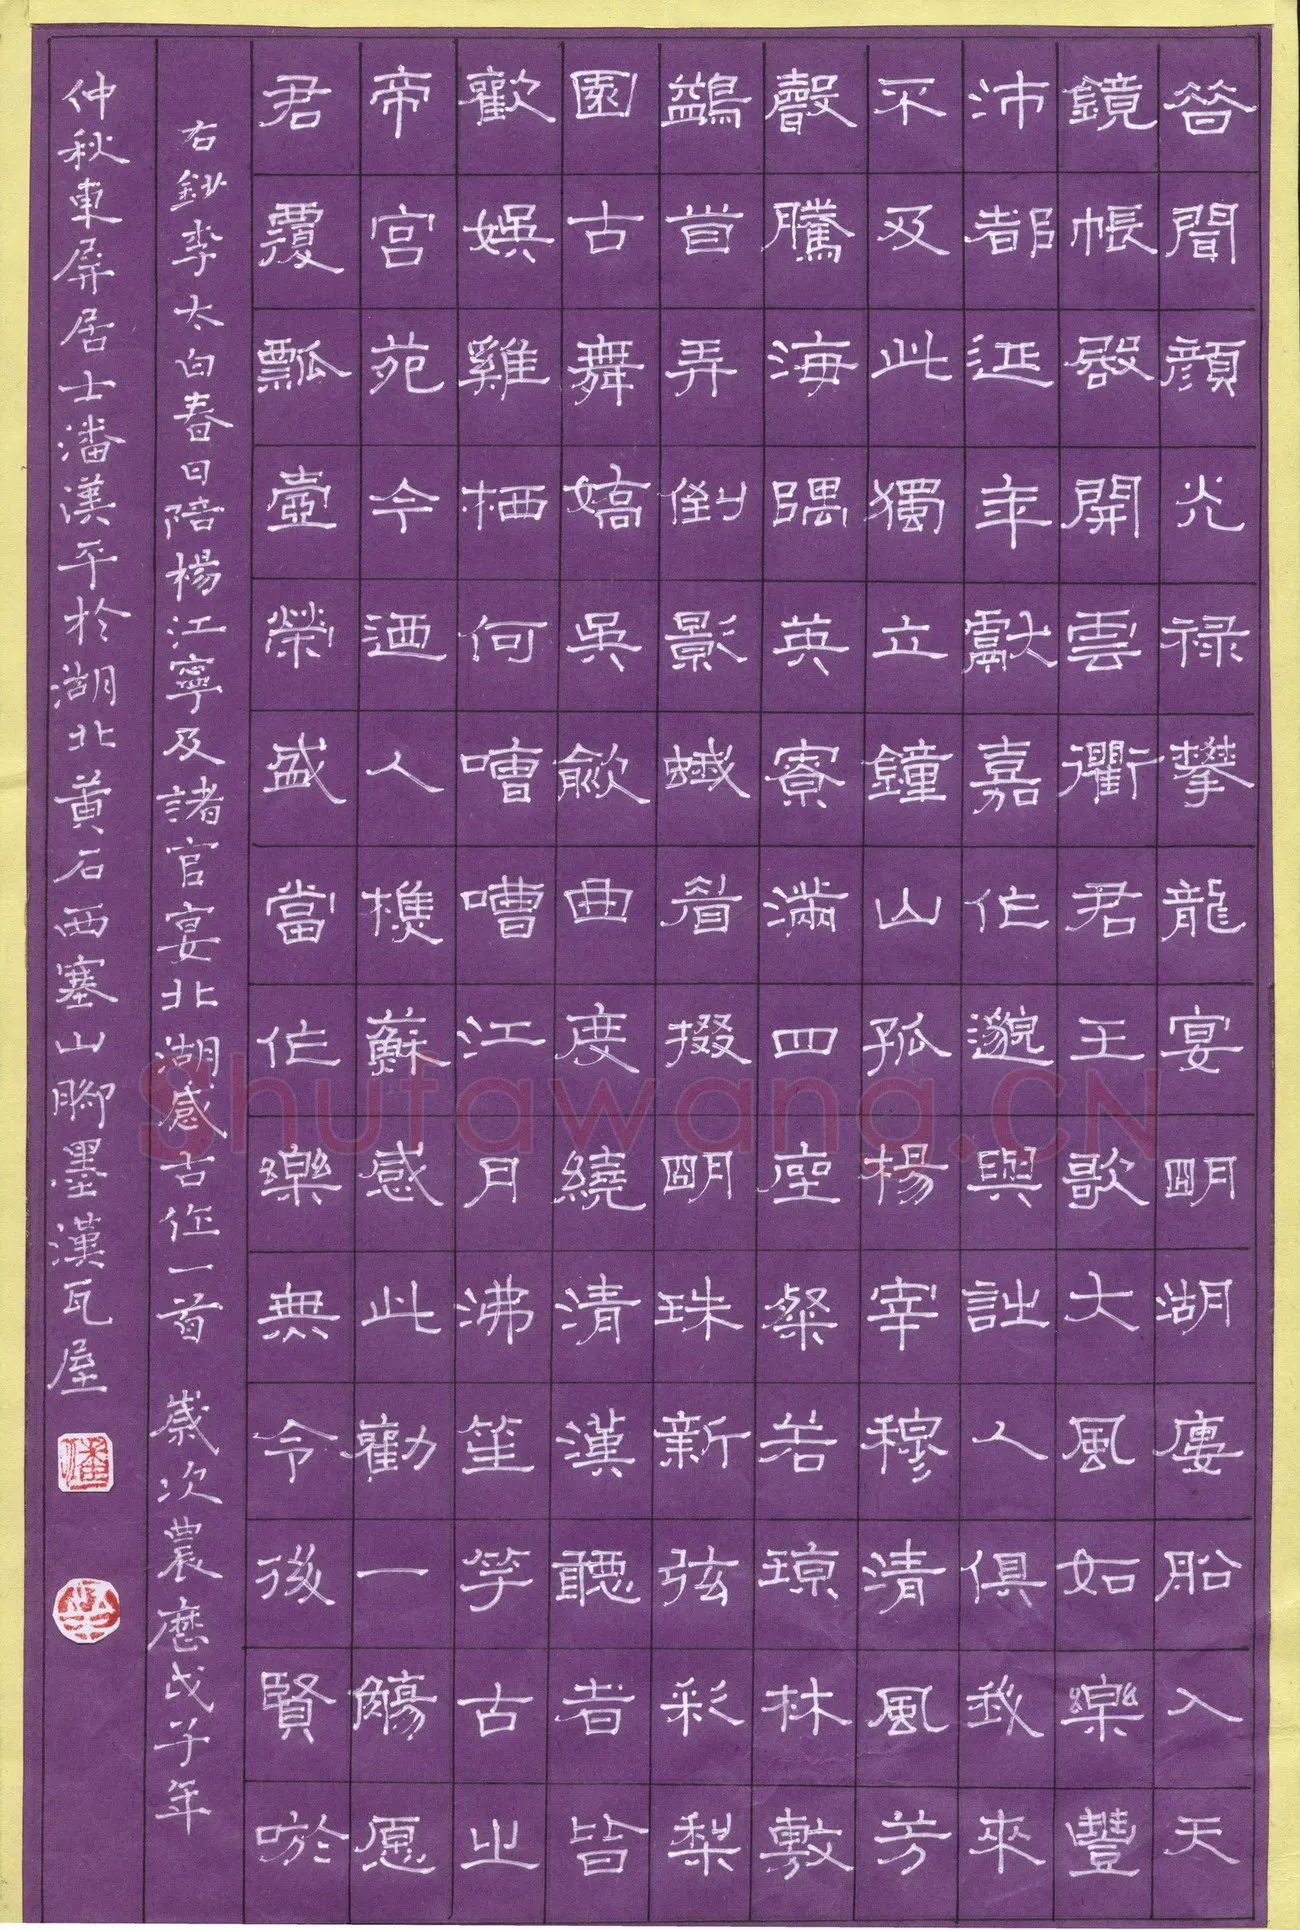 昔聞顏光祿攀龍宴明湖廔船入天
鏡帳殿開雲衢君王歌大風如樂豐
沛都延年獻嘉作邈與詩人俱我來
不及此獨立鐘山孤楊宰穆清風芳
聲騰海隅英寮滿四座粲若瓊林敷
鷁首弄倒影蛾眉掇明珠新弦彩梨
園古舞嬌吳歈曲度繞清漢聽者皆
歡娛雞栖何嘈嘈江月沸笙竽古之
帝宮苑今迺人樵蘇感此勸一觴愿
君覆瓢壺榮盛當作樂無令後賢唹
右鈔李太白春日陪楊江寧及諸官宴北湖感古作一首 歲次農曆戊子年
仲秋東屏居士潘漢平於湖北黄石西塞山腳墨漢瓦屋
潘
Shufawang.CN